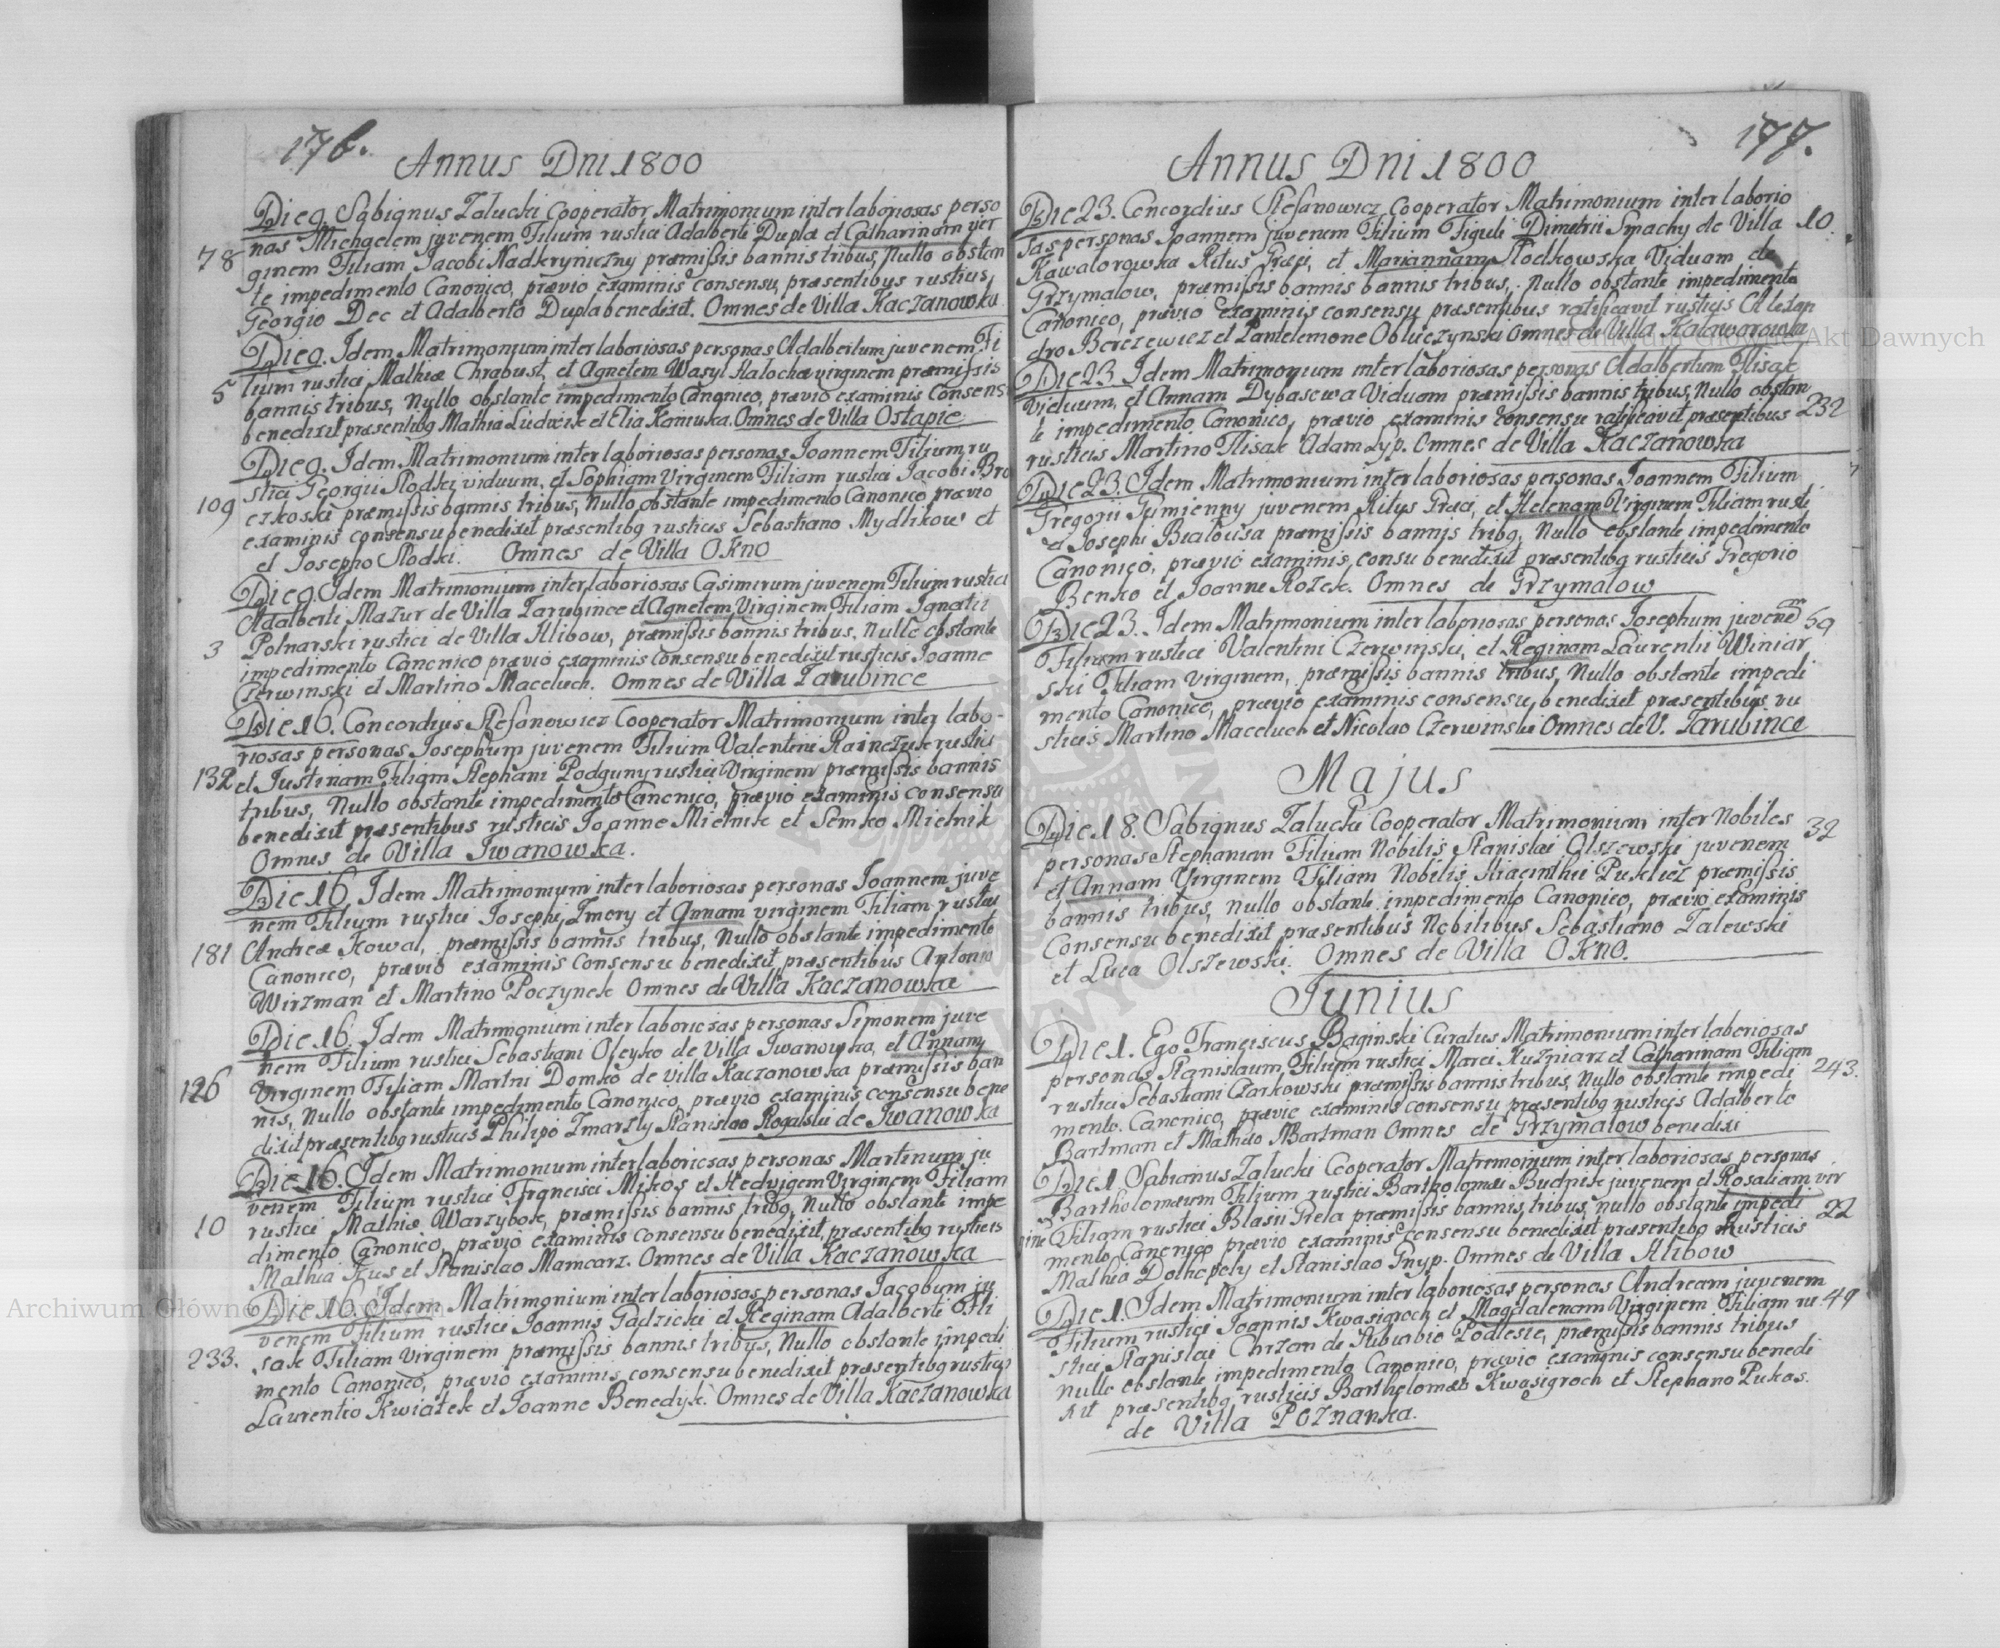 176.
Annus Dni 1800
Die 9. Sabignus Zalucki Cooperator Matrimonium inter laboriosas perso
nas Michaelem juvenem Filium rustici Adalberti Dupla et Catharinam vir
78
ginem Filiam Jacobi Nadkryniczny præmissis bannis tribus, Nullo obstan
te impedimento Canonico, prævio examinis consensu, præsentibus rusticis,
Georgio Dec et Adalberto Dupla benedixit. Omnes de Villa Kaczanowka
Die 9. Idem Matrimonium inter laboriosas personas Adalbertum juvenem Fi
5
lium rustici Mathiæ Chrabust, et Agnetem Wasyl Halocha virginem præmissis
bannis tribus, Nullo obstante impedimento Canonico, prævio examinis Consens
benedixit præsentibq Mathia Ludwik et Elia Kamuka. Omnes de Villa Ostapie
Die 9. Idem Matrimonium inter laboriosas personas Joannem Filium ru
stici Georgii Słodki viduum, et Sophiam Virginem Filiam rustici Jacobi Bro
109
czkoski præmissis bannis tribus, Nullo obstante impedimento Canonico prævio
examinis consensu benedixit præsentibq rusticis Sebastiano Mydlikow et
et Josepho Słodki. Omnes de Villa Okno
Die 9 Idem Matrimonium inter laboriosas Casimirum juvenem Filium rustici
Adalberti Mazur de Villa Zarubince et Agnetem Virginem Filiam Ignatii
3
Polnarski rustici de Villa Hlibow, præmissis bannis tribus, Nullo obstante
impedimento Canonico prævio examinis consensu benedixit rusticis Joanne
Czerwinski et Martino Maceluch. Omnes de Villa Zarubince
Die 16. Concordius Stefanowicz Cooperator Matrimonium inter labo-
riosas personas Josephum juvenem Filium Valentini Rainczuk rustici
132
et Justinam Filiam Stephani Podguny rustici Virginem præmissis bannis
tribus, Nullo obstante impedimento Canonico, prævio examinis consensu
benedixit præsentibus rusticis Joanne Mielnik et Semko Mielnik
Omnes de Villa Iwanowka.
Die 16, Idem Matrimonium inter laboriosas personas Joannem juve
nem Filium rustici Josephi Zmery et Annam virginem Filiam rustici
181
Andreæ Kowal, præmissis bannis tribus, Nullo obstante impedimento
Canonico, prævio examinis consensu benedixit præsentibus Antonio
Wirzman et Martino Poczynek Omnes de Villa Kaczanowka
Die 16. Idem Matrimonium inter laboriosas personas Simonem juve
nem Filium rustici Sebastiani Oleyko de Villa Iwanowka, et Annam
126
Virginem Filiam Martini Domko de villa Kaczonowka præmissis ban
nis, Nullo obstante impedimento Canonico, prævio examinis consensu bene
dixit præsentibq rusticis Philipo Zmarzly Stanislao Rogalski de Iwanowka
Die 16. Idem Matrimonium inter laboriosas personas Martinum ju
venem Filium rustici Francisci Mikos et Hedvigem Virginem Filiam
10
rustici Mathiæ Warzybok, præmissis bannis tribq, Nullo obstante impe
dimento Canonico, prævio examinis consensu benedixit, præsentibq rusticis
Mathia Kus et Stanislao Mamcarz. Omnes de Villa Kaczanowka
Die 16. Idem Matrimonium inter laboriosas personas Jacobum ju
venem Filium rustici Joannis Gadzicki et Reginam Adalberti Fli
233.
sak Filiam virginem præmissis bannis tribus, Nullo obstante impedi
mento Canonico, prævio examinis consensu benedixit præsentibq rusticis
Laurentio Kwiatek et Joanne Benedyk. Omnes de Villa Kaczanowka
177.
Annus Dni 1800
Die 23. Concordius Stefanowicz Cooperator Matrimonium inter laborio
sas personas Joannem juvenem Filium Figuli Dimitrii Smachy de Villa 10.
Kawalorowka Ritus Græci, et Mariannam Słodkowska Viduam de
Grzymalow, præmissis bannis bannis tribus, Nullo obstante impedimento
Canonico, prævio examinis consensu præsentibus ratificavit rusticis Alexan
dro Berezewicz et Pantelemone Obluczynski Omnes de Villa Kalaworowka
Die 23 Idem Matrimonium inter laboriosas personas Adalbertum Flisak
Viduum, et Annam Dybasowa Viduam præmissis bannis tribus, Nullo obstan
te impedimento Canonico, prævio examinis consensu ratificavit præsentibus 232
rusticis Martino Flisak Adam Zyp. Omnes de Villa Kaczanowka
Die 23. Idem Matrimonium inter laboriosas personas Joannem Filium
Gregorii Gumienny juvenem Ritus Græci, et Helenam Virginem Filiam rusti
ci Josephi Bialousa præmissis bannis tribq, Nullo obstante impedimento
Canonico, prævio examinis, consu benedixit præsentibq rusticis Gregorio
Benko et Joanne Rozek. Omnes de Grzymalow
Die 23. Idem Matrimonium inter laboriosas personas Josephum juvene 59
Filium rustici Valentini Czerwinski, et Reginam Laurentii Winiar
ski Filiam virginem, præmissis bannis tribus, Nullo obstante impedi
mento Canonico, prævio examinis consensu, benedixit præsentibus ru
sticis Martino Maceluch et Nicolao Czerwinski Omnes de V. Zarubince
Majus
Die 18. Sabignus Zalucki Cooperator Matrimonium inter Nobiles 32
personas Stephanum Filium Nobilis Stanislai Olszewski juvenem
et Annam Virginem Filiam Nobilis Hiacinthi Puklicz præmissis
bannis tribus, Nullo obstante impedimento Canonico, prævio examinis
Consensu benedixit præsentibus Nobilibus Sebastiano Zalewski
et Luca Olszewski. Omnes de Villa Okno.
Junius
Die 1. Ego Franciscus Baginski Curatus Matrimonium inter laboriosas
personas Stanislaum Filium rustici Marci Kuzniarz et Catharinam Filiam 243.
rustici Sebastiani Czarkowski præmissis bannis tribus, Nullo obstante impedi
mento Canonico, prævio examinis consensu præsentibq rusticis Adalberto
Bartman et Mathæo Bartman Omnes de Grzymalow benedixi
Die 1 Sabianus Zalucki Cooperator Matrimonium inter laboriosas personas
Bartholomæum Filium rustici Bartholomæi Budnik juvenem et Rosaliam vir
gine Filiam rustici Blasii Prela præmissis bannis tribus, nullo obstante impedi 22
mento, Canonico prævio examinis consensu benedixit præsentibq Rusticis
Mathia Dolhopoly et Stanislao Gnyp. Omnes de Villa Hlibow
Die 1. Idem Matrimonium inter laboriosas personas Andream juvenem
Filium rustici Joannis Kwasigroch et Magdalenam Virginem Filiam ru- 49
stici Stanislai Chrzan de Suburbio Podlesie, præmissis bannis tribus
nullo obstante impedimento Canonico, prævio examinis consensu benedi
xit præsentibq rusticis Bartholomæo Kwasigroch et Stephano Pukas.
de Villa Poznanka.
Archiwum Główne Akt Dawnych
Archiwum Główne Akt Dawnych